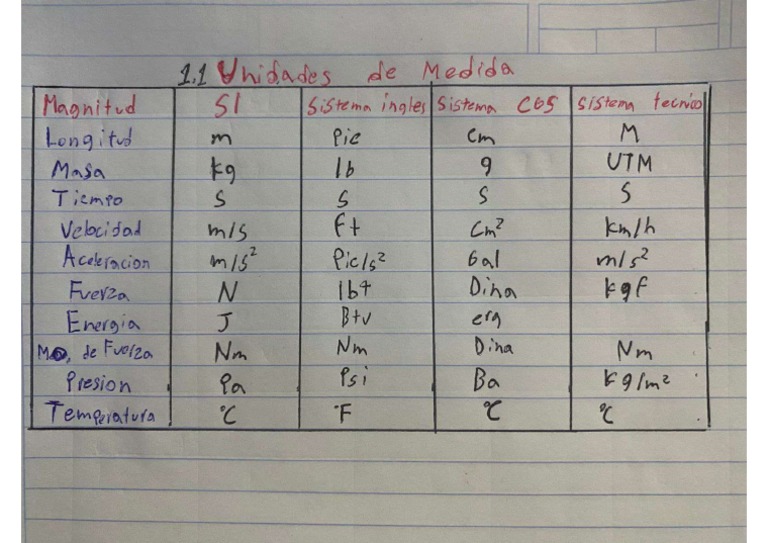 1.1 Unidades de Medida
Magnitud SI Sistema ingles Sistema CGS Sistema tecnico
Longitud m Pie cm M
Masa kg lb g UTM
Tiempo s s s s
Velocidad m/s ft cm² km/h
Aceleracion m/s² Pie/s² Gal m/s²
Fuerza N lbf Dina kgf
Energia J Btu erg
Mo, de Fuerza Nm Nm Dina Nm
Presion Pa Psi Ba kg/m²
Temperatura °C °F °C °C